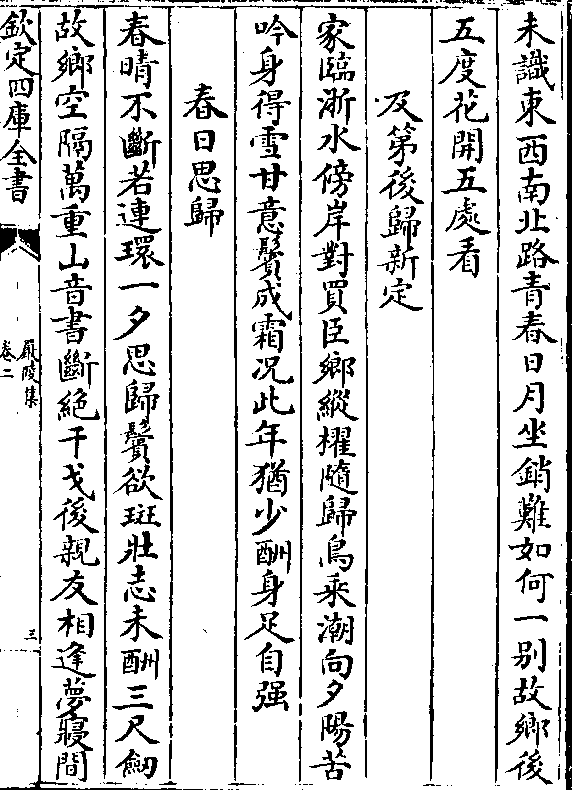 未識東西南北路青春日月坐銷難如何一别故鄉後
五度花開五處看
及第後歸新定
家臨浙水傍岸對買臣鄉縱櫂隨歸鳥乘潮向夕陽苦
吟身得雪甘意鬢成霜况此年猶少酬身足自强
春日思歸
春晴不斷若連環一夕思歸鬢欲斑壯志未酬三尺劒
故鄉空隔萬重山音書斷絶干戈後親友相逢夢寢間
欽定四庫全書
嚴陵集
卷二
三